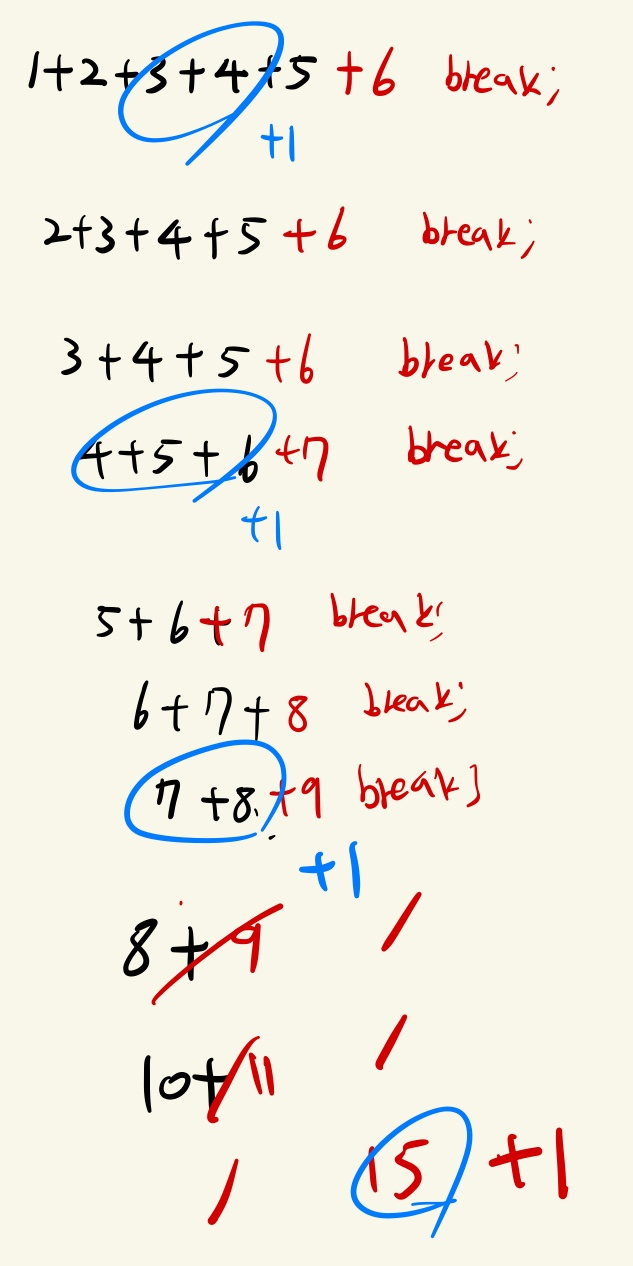 1+2+3+4+5 +6 break;
+1
2+3+4+5 +6 break;
3+4+5 +6 break;
4+5+6 +7 break;
+1
5+6+7 break;
6+7+8 break;
7+8 +9 break;
+1
8+9
10+11
15 +1